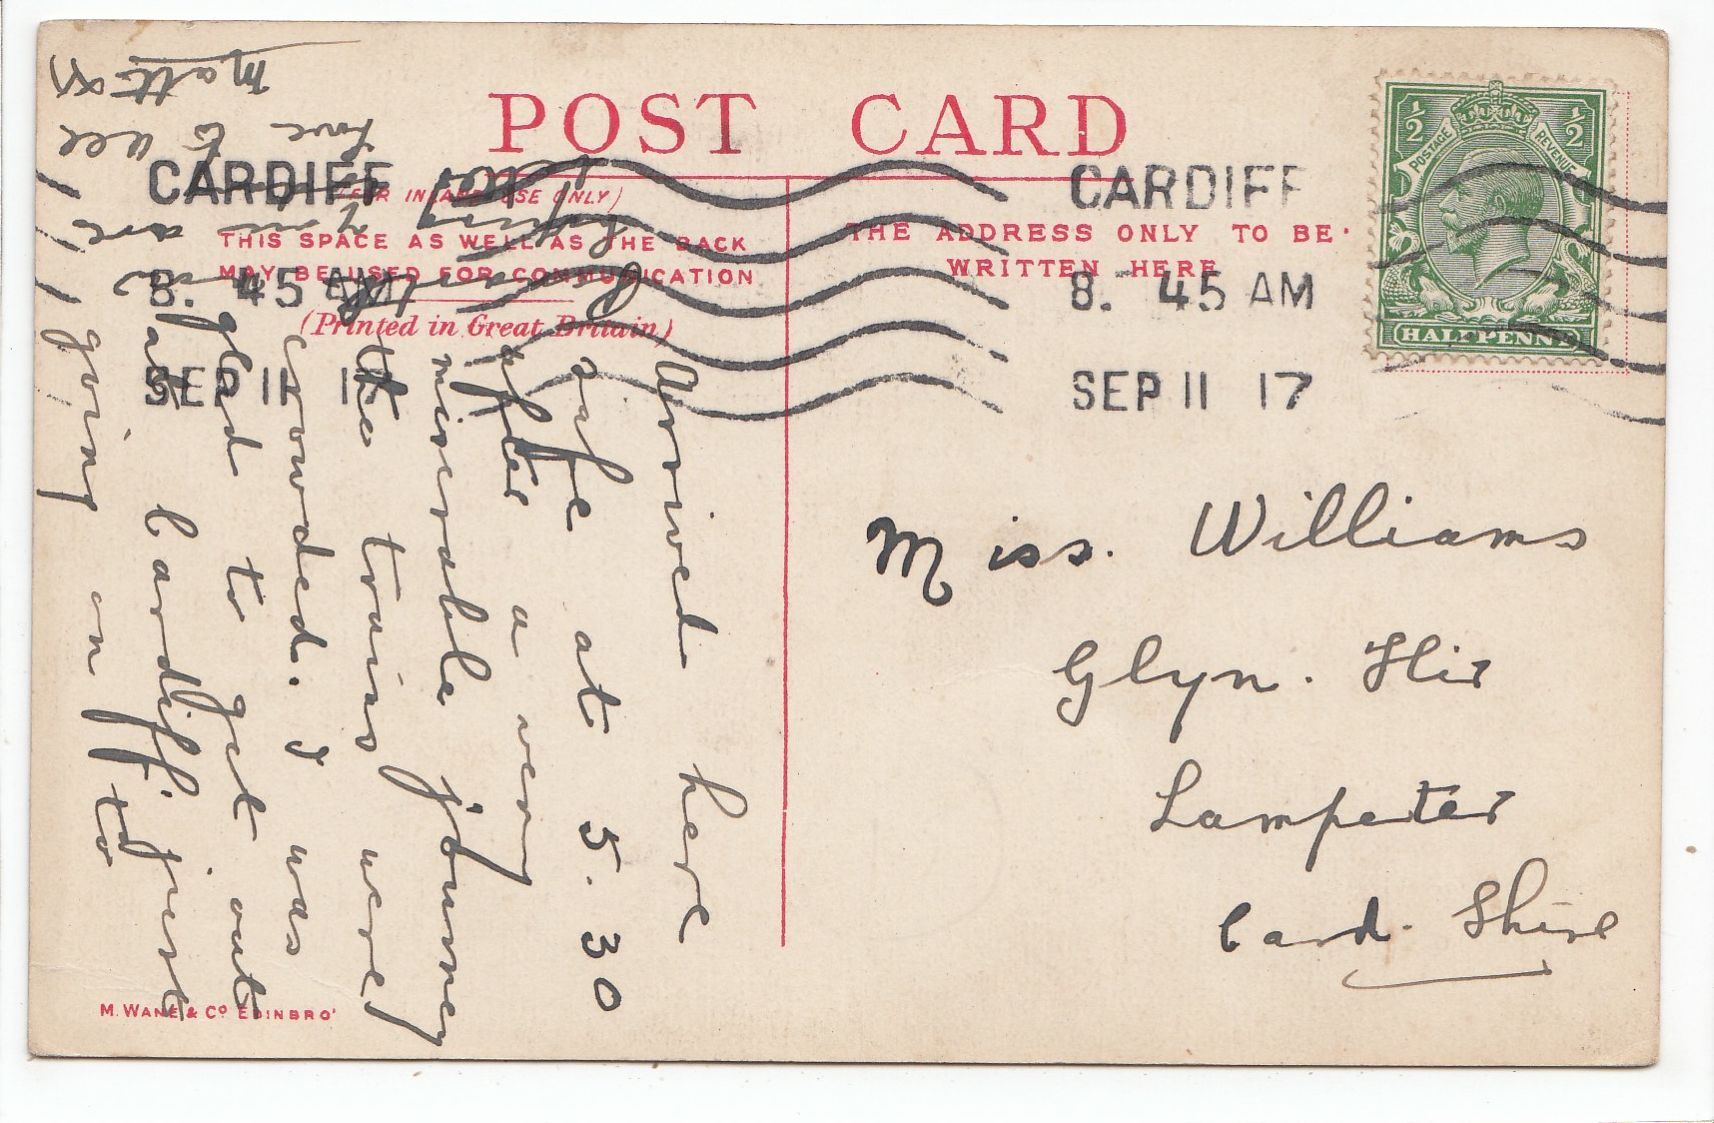 POST CARD
(FOR INLAND USE ONLY)
THIS SPACE AS WELL AS THE BACK
MAY BE USED FOR COMMUNICATION
(Printed in Great Britain)
THE ADDRESS ONLY TO BE
WRITTEN HERE
CARDIFF
8. 45 AM
SEP 11 17
CARDIFF
8. 45 AM
SEP 11 17
½ ½
POSTAGE REVENUE
HALFPENNY
Arrived here
safe at 5.30
after a very
miserable journey
the trains were
crowded. I was
glad to get out
at Cardiff just
going on to
you are
Love to all
Matt xx
Miss. Williams
Glyn. Hir
Lampeter
Card. Shire
M. WANE & Co EDINBRO'